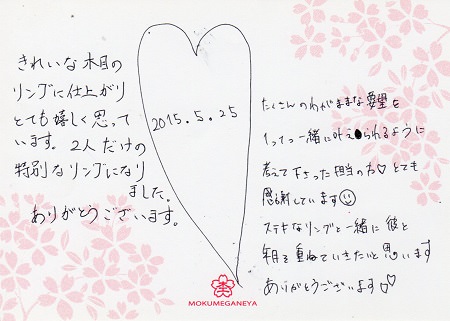 きれいな木目の
リングに仕上がり
とても嬉しく思って
います。2人だけの
特別なリングになり
ました。
ありがとうございます。
2015.5.25
たくさんのわがままな要望を
1つ1つ一緒に叶えられるように
考えて下さった担当の方♡とても
感謝しています☺
ステキなリングと一緒に彼と
年月を重ねていきたいと思います
ありがとうございます♡
MOKUMEGANEYA